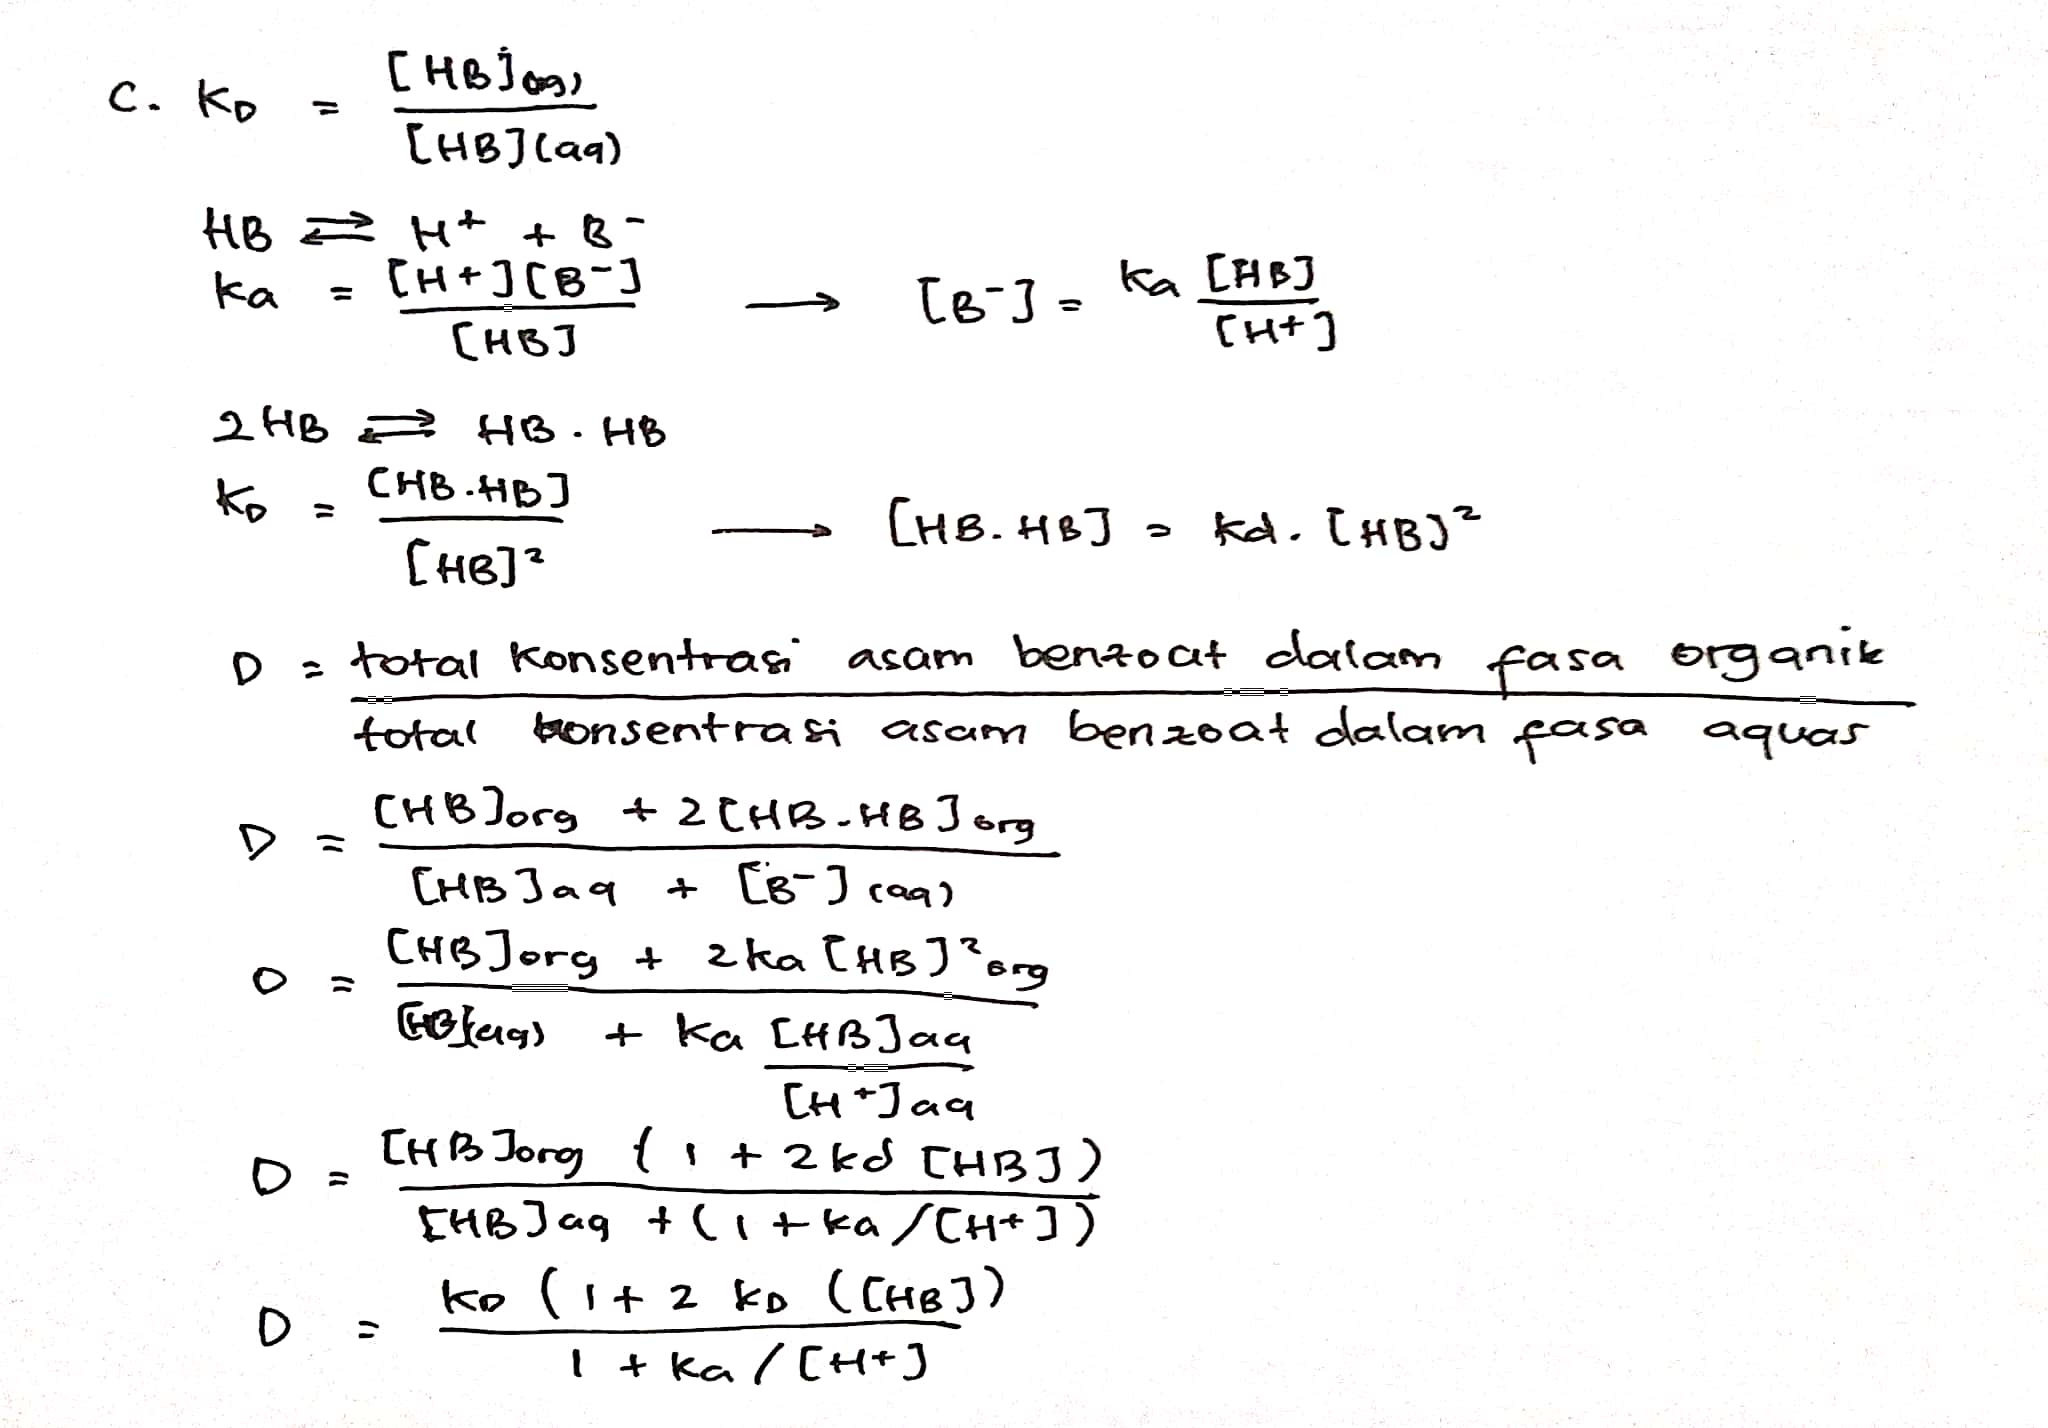 C. KD = [HB](org) / [HB](aq)
HB ⇌ H+ + B-
Ka = [H+][B-] / [HB] → [B-] = Ka [HB] / [H+]
2HB ⇌ HB . HB
KD = [HB.HB] / [HB]² → [HB.HB] = kd. [HB]²
D = total konsentrasi asam benzoat dalam fasa organik
total konsentrasi asam benzoat dalam fasa aquas
D = [HB]org + 2[HB-HB]org / [HB]aq + [B-](aq)
D = [HB]org + 2ka [HB]²org / [HB](aq) + Ka [HB]aq / [H+]aq
D = [HB]org (1 + 2kd [HB]) / [HB]aq + (1 + ka/[H+])
D = KD (1 + 2 KD ([HB]) / 1 + Ka / [H+]